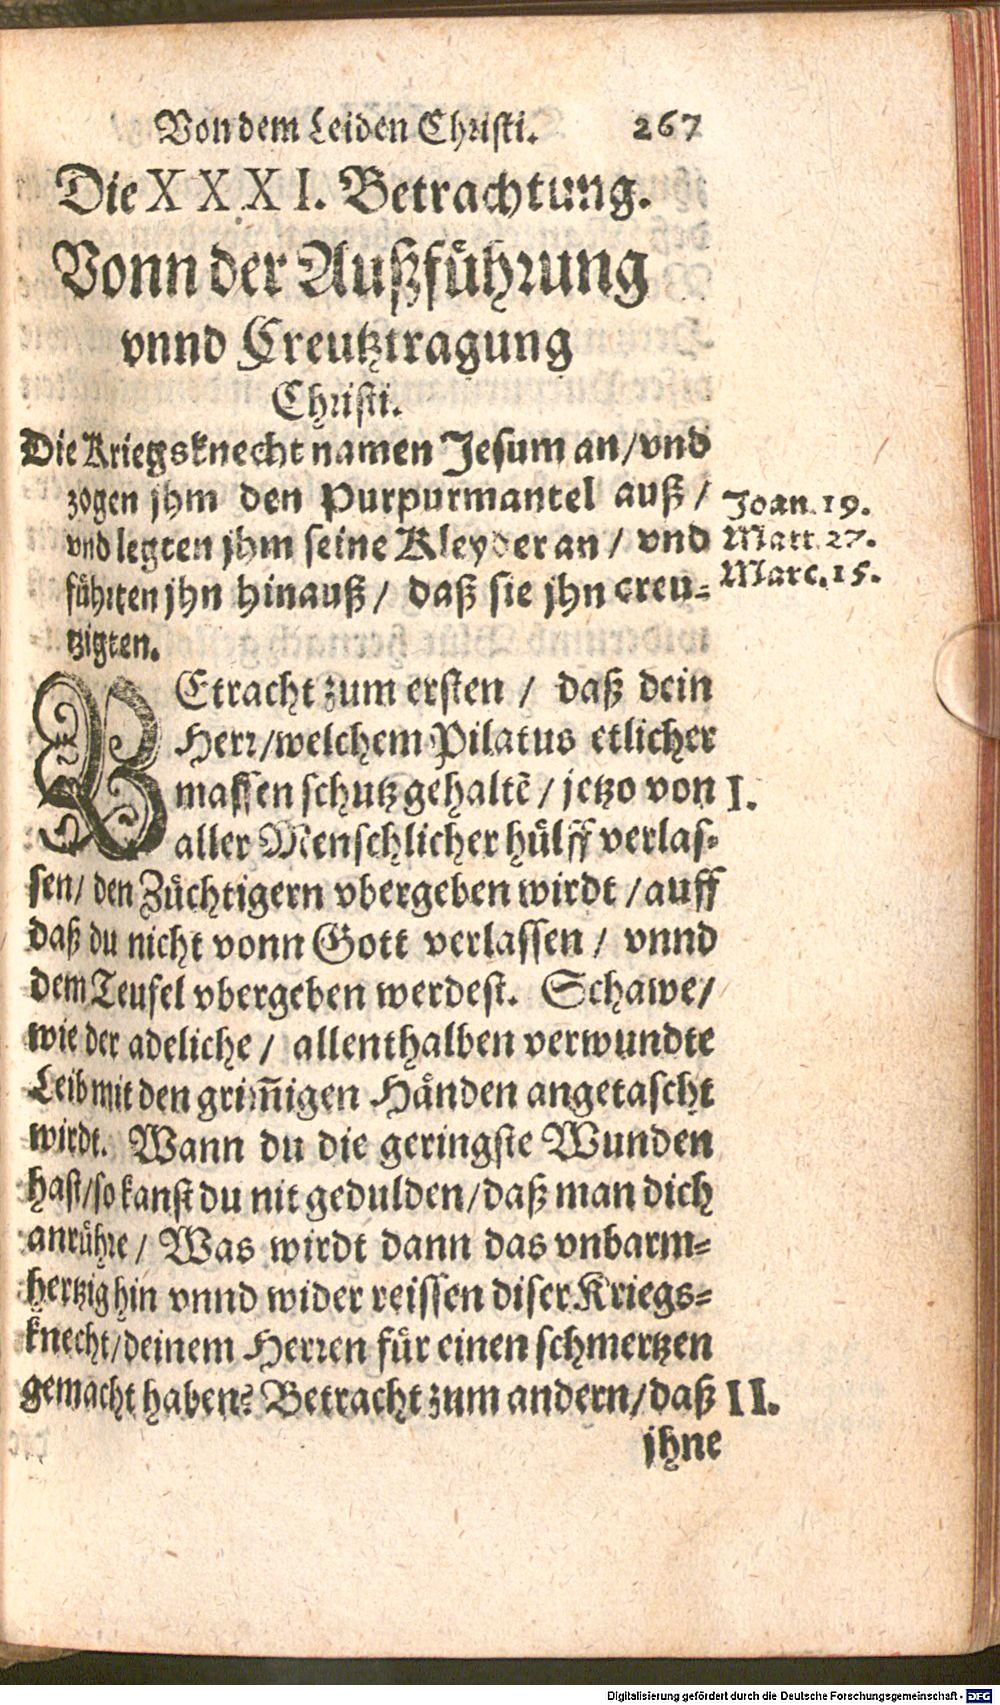 Von dem Leiden Christi. 267
Die XXXI. Betrachtung.
Vonn der Außführung
vnnd Creutztragung
Christi.
Die Kriegsknecht namen Jesum an/vnd
zogen jhm den Purpurmantel auß/
vnd legten jhm seine Kleyder an/ vnd
führten jhn hinauß/ daß sie jhn creu-
tzigten.
Joan. 19.
Matt. 27.
Marc. 15.
BEtracht zum ersten / daß dein
Herr/welchem Pilatus etlicher
massen schutz gehaltẽ / jetzo von I.
aller Menschlicher hülff verlas-
sen/ den Züchtigern vbergeben wirdt /auff
daß du nicht vonn Gott verlassen / vnnd
dem Teufel vbergeben werdest. Schawe/
wie der adeliche / allenthalben verwundte
Leib mit den grim̃igen Händen angetascht
wirdt. Wann du die geringste Wunden
hast/so kanst du nit gedulden/daß man dich
anrühre / Was wirdt dann das vnbarm-
hertzig hin vnnd wider reissen diser Kriegs-
knecht/deinem Herren für einen schmertzen
gemacht haben? Betracht zum andern/daß II.
jhne
Digitalisierung gefördert durch die Deutsche Forschungsgemeinschaft - DFG